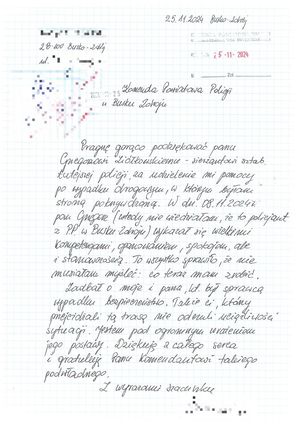 25.11.2024 Busko-Zdrój
28-100 Busko-Zdrój
ul.
25 -11- 2024
Komenda Powiatowa Policji
w Busku Zdroju
Pragnę gorąco podziękować panu
Grzegorzowi - sierżantowi sztab.
tutejszej policji, za udzielenie mi pomocy
po wypadku drogowym, w którym byłam
stroną pokrzywdzoną. W dn. 08.11.2024r.
pan Grzegorz (wtedy nie wiedziałam, że to policjant
z PP w Busku Zdroju) wykazał się wielkimi
kompetencjami, opanowaniem, spokojem, ale
i stanowczością. To wszystko sprawiło, że nie
musiałam myśleć: co teraz mam zrobić.
Zadbał o moje i pana, kt. był sprawcą
wypadku bezpieczeństwo. Także ci, którzy
przejeżdżali tą trasą nie odczuli uciążliwości
sytuacji. Jestem pod ogromnym wrażeniem
jego postawy. Dziękuję z całego serca
i gratuluję Panu Komendantowi takiego
podwładnego.
Z wyrazami szacunku